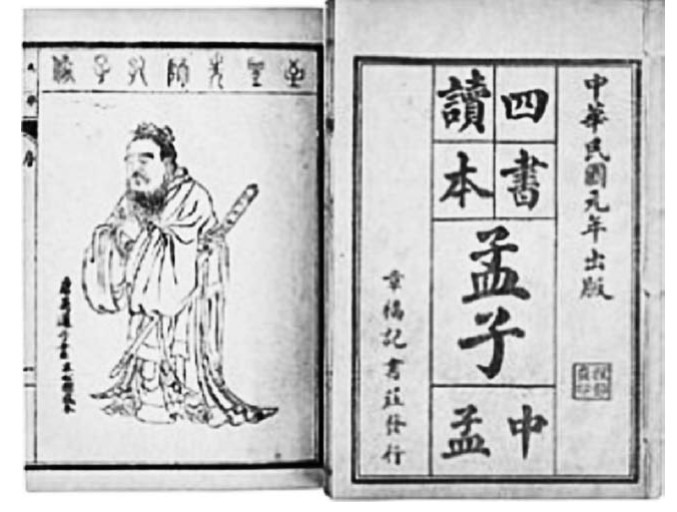 中華民國元年出版
四書
讀本
孟子
中孟
章福記書莊發行
至聖先師孔子像